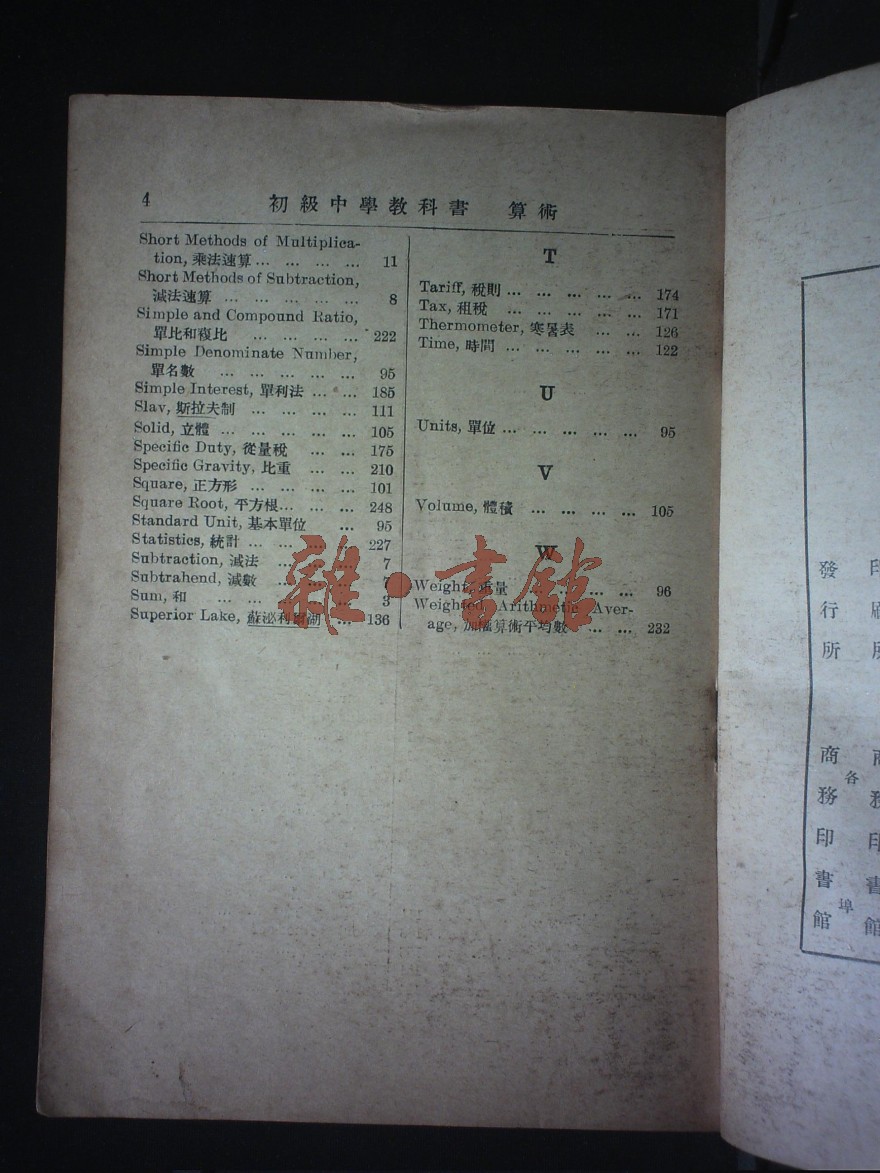 4
初級中學教科書 算術
Short Methods of Multiplica-
tion, 乘法速算 ... ... ... ... 11
Short Methods of Subtraction,
減法速算 ... ... ... ... ... 8
Simple and Compound Ratio,
單比和複比 ... ... ... ... 222
Simple Denominate Number,
單名數 ... ... ... ... ... 95
Simple Interest, 單利法 ... ... 185
Slav, 斯拉夫制 ... ... ... ... 111
Solid, 立體 ... ... ... ... ... 105
Specific Duty, 從量稅 ... ... 175
Specific Gravity, 比重 ... ... 210
Square, 正方形 ... ... ... ... 101
Square Root, 平方根... ... ... 248
Standard Unit, 基本單位 ... 95
Statistics, 統計 ... ... ... ... 227
Subtraction, 減法 ... ... ... 7
Subtrahend, 減數 ... ... ... 7
Sum, 和 ... ... ... ... ... 3
Superior Lake, 蘇泌利爾湖 ... 136
T
Tariff, 稅則 ... ... ... ... ... 174
Tax, 租稅 ... ... ... ... ... 171
Thermometer, 寒暑表 ... ... 126
Time, 時間 ... ... ... ... ... 122
U
Units, 單位 ... ... ... ... ... 95
V
Volume, 體積 ... ... ... ... 105
W
Weight, 重量 ... ... ... ... 96
Weighted Arithmetic Aver-
age, 加權算術平均數 ... ... 232
雜·書館
印
發行所
商務印書館
各埠
商務印書館